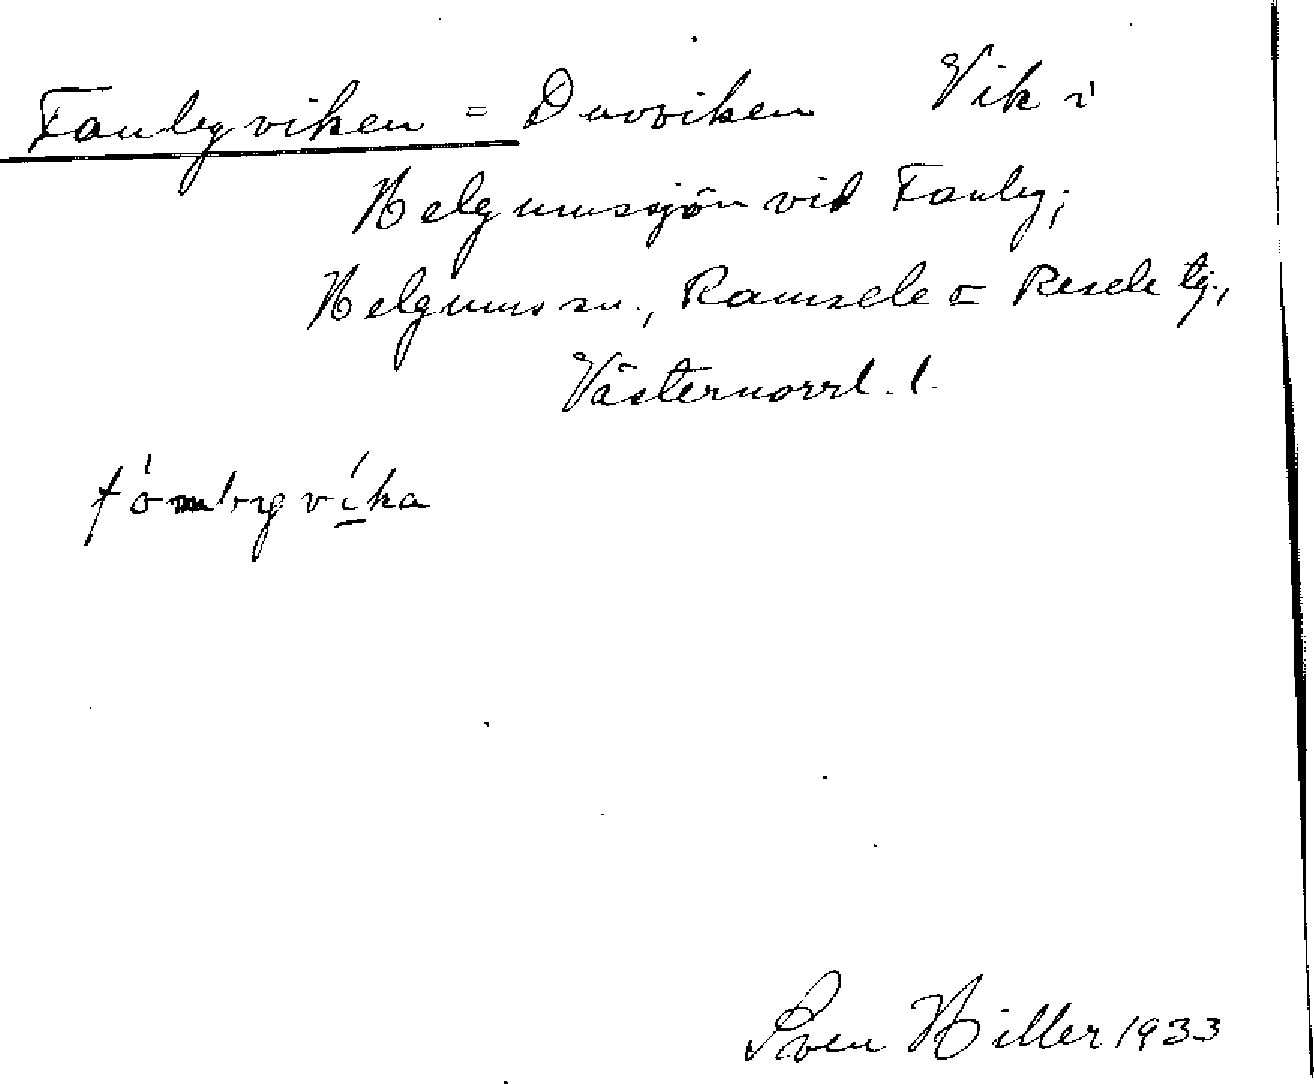 Fanbyviken = Duvviken Vik i
Helgumssjön vid Fanby;
Helgums sn., Ramsele o Resele tg.,
Västernorrl. l.
fómbyvíka
Sven Hiller 1933